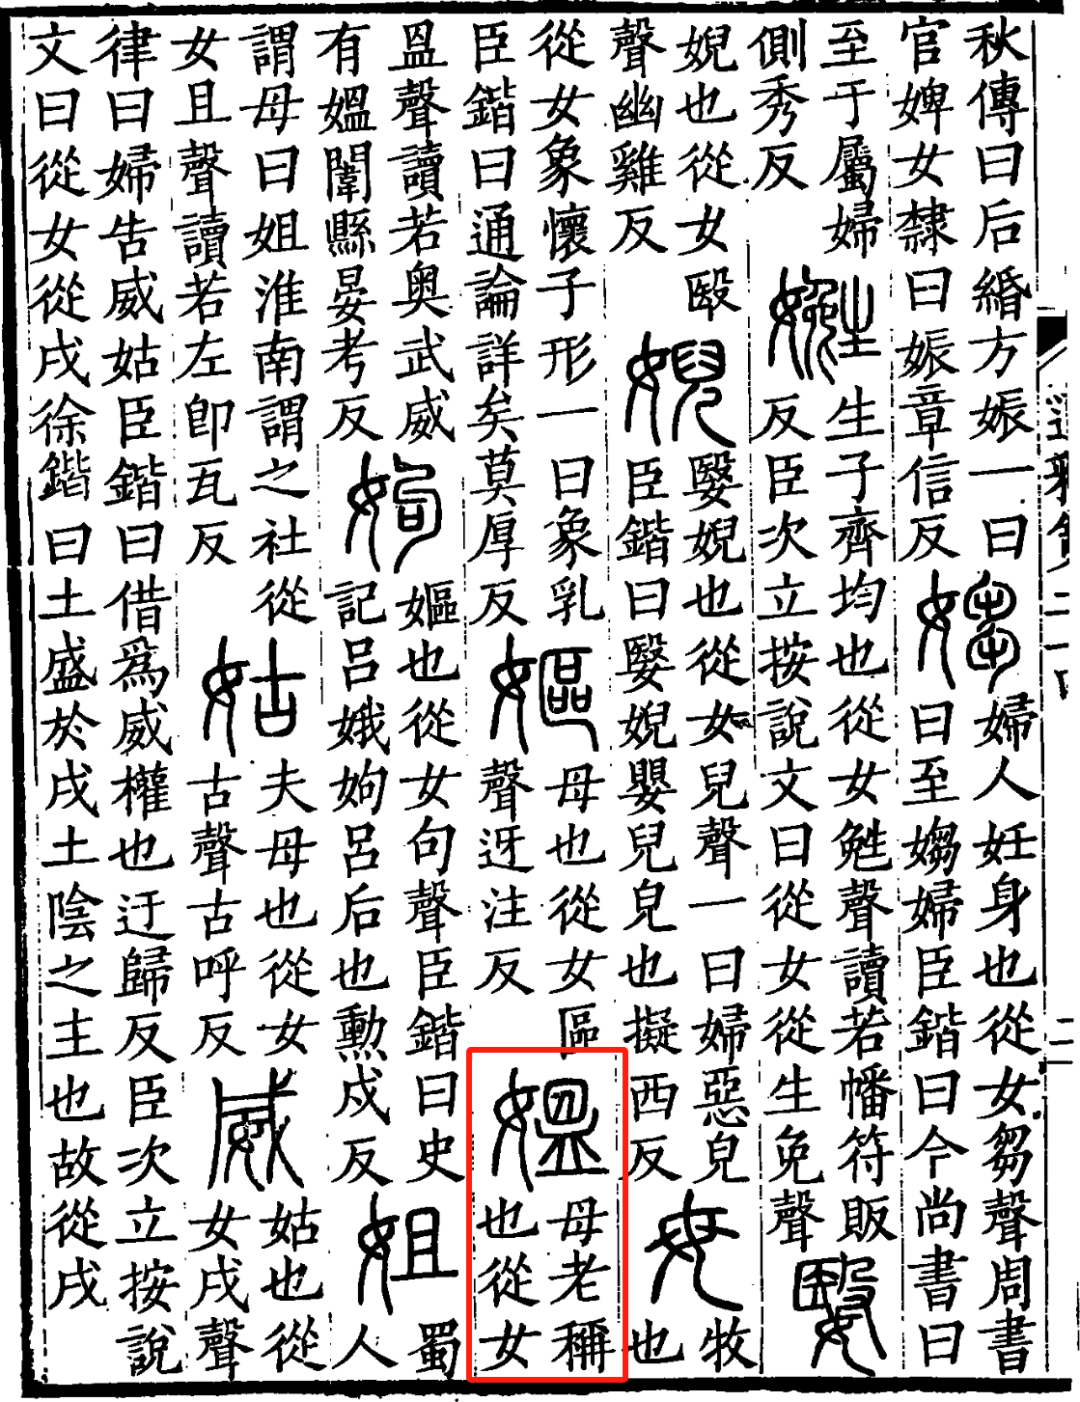 秋傳曰后緡方娠一曰
官婢女隸曰娠章信反
媰
婦人妊身也從女芻聲周書
曰至媰婦臣鍇曰今尚書曰
至于屬婦
側秀反
嬎
生子齊均也從女聲讀若幡符販
反臣次立按說文曰從女從生免聲
嫛
婗也從女殹
聲幽雞反
婗
嫛婗也從女兒聲一曰婦惡皃
臣鍇曰嫛婗嬰兒皃也擬西反
母
牧
也
從女象懷子形一曰象乳
臣鍇曰通論詳矣莫厚反
嫗
母也從女區
聲迓注反
媼
母老稱
也從女
𥁕聲讀若奥武威
有媼闈縣晏考反
姁
嫗也從女句聲臣鍇曰史
記呂娥姁呂后也勲戍反
姐
蜀
人
謂母曰姐淮南謂之社從
女且聲讀若左即瓦反
姑
夫母也從女
古聲古呼反
威
姑也從
女戌聲
律曰婦告威姑臣鍇曰借爲威權也迂歸反臣次立按說
文曰從女從戌徐鍇曰土盛於戌土陰之主也故從戌